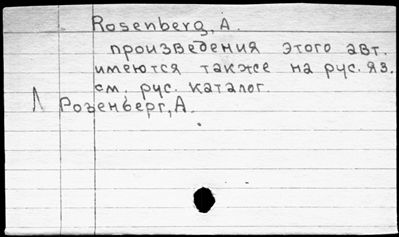 Rosenberg, A.
произведения этого авт.
имеются также на рус. яз.
см. рус. каталог.
Розенберг, А.